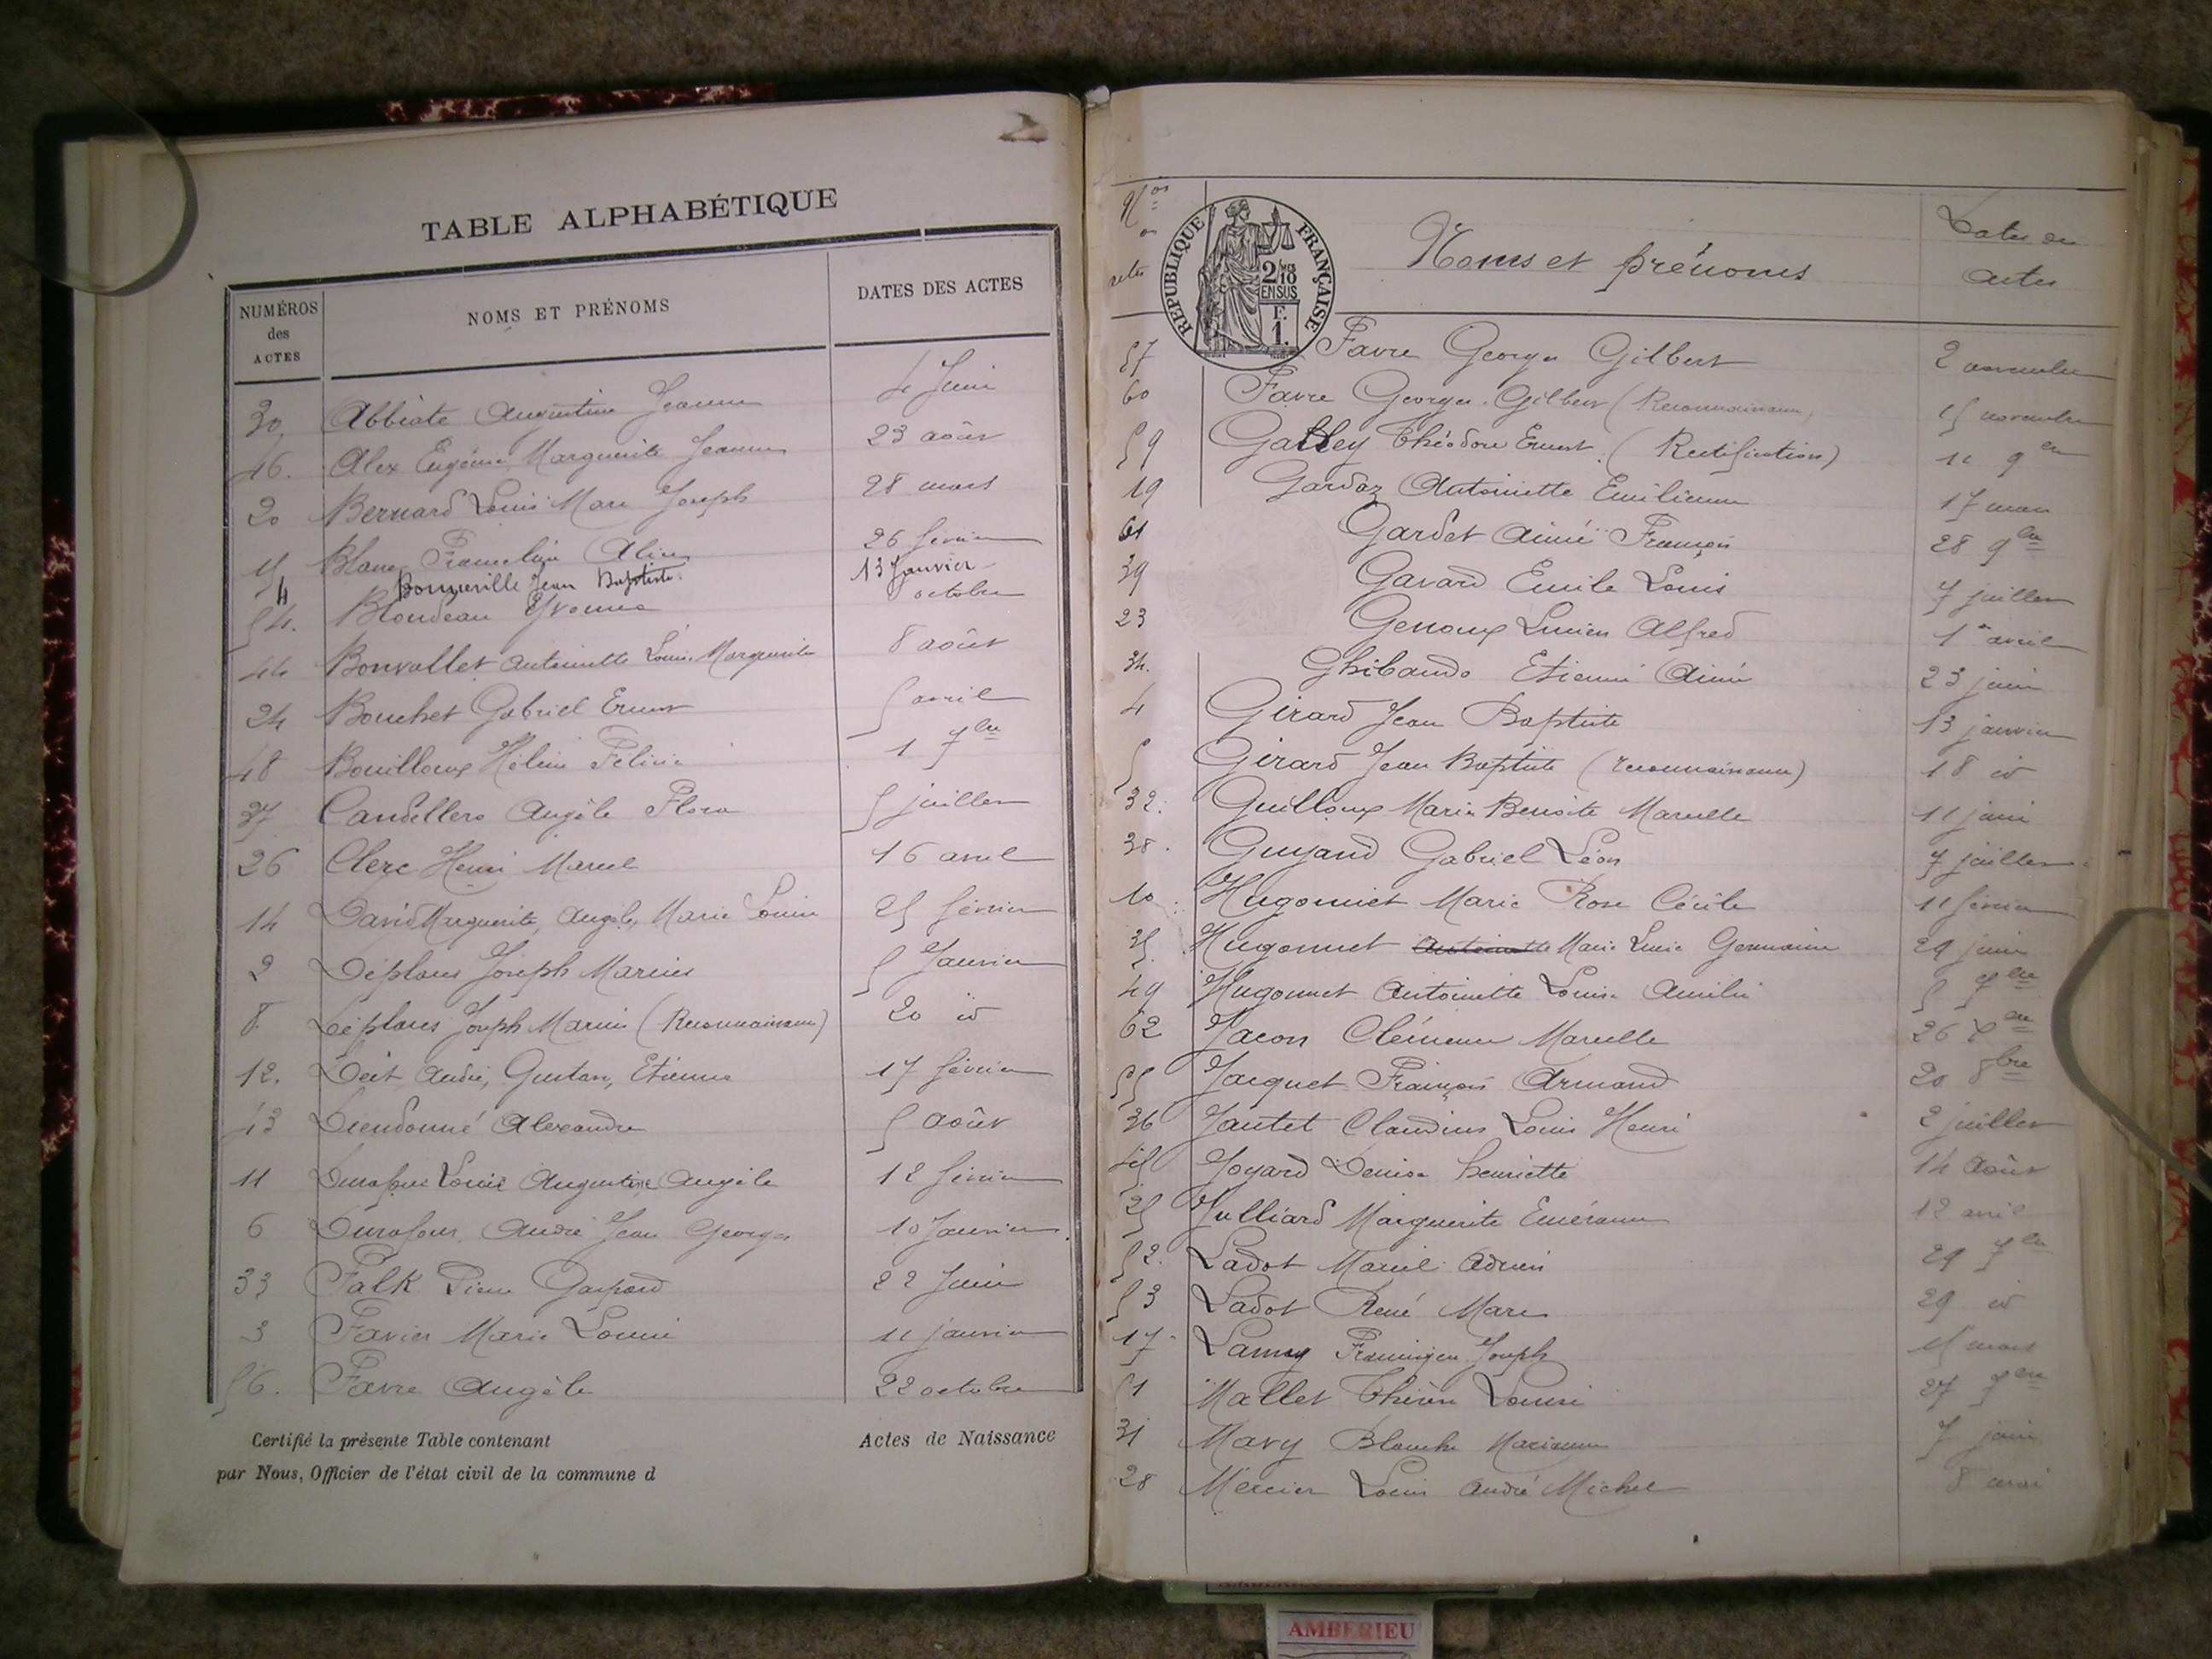 TABLE ALPHABÉTIQUE
NUMÉROS des ACTES NOMS ET PRÉNOMS DATES DES ACTES
30 Abbiate Augustine Jeanne 4 Juin
46. Alex Eugénie Marguerite Jeanne 23 août
20 Bernard Louis Marc Joseph 28 mars
15 Blanc Franceline Aline 26 février
4 Bonneville Jean Baptiste. 13 Janvier
54. Blondeau Yvonne 8 octobre
44 Bonvallet Antoinette Louise Marguerite 8 août
24 Bouchet Gabriel Ernest 5 avril
48 Bouilloux Hélène Félicie 1 7bre
37 Candellero Angèle Flora 5 juillet
26 Clerc Henri Marcel 16 avril
14 David Marguerite, Angèle, Marie Louise 25 février
2 Déplans Joseph Marius 5 Janvier
8. Déplans Joseph Marius (Reconnaissance) 20 id
12. André, Gustave, Etienne 17 février
43 Dieudonné Alexandre 5 août
11 Durafour Louise Augustine Angèle 12 février
6 Durafour André Jean Georges 10 Janvier
33 Falk Pierre Gaspard 22 Juin
3 Favier Marie Louise 11 janvier
56. Favre Angèle 22 octobre
Certifié la présente Table contenant Actes de Naissance
par Nous, Officier de l'état civil de la commune d
Nos Noms et prénoms Dates des actes
REPUBLIQUE FRANÇAISE
2/10
EN SUS
F.
1.
57 Favre Georges Gilbert 2 novembre
60 Favre Georges Gilbert (Reconnaissance) 15 novembre
59 Galley Théodore Ernest (Rectification) 11 9bre
19 Gardaz Antoinette Emilienne 17 mars
61 Gardet Aimé François 28 9bre
39 Gavard Emile Louis 7 juillet
23 Genoux Lucien Alfred 1er avril
34. Ghibaudo Etienne Aimé 23 juin
4 Girard Jean Baptiste 13 janvier
5 Girard Jean Baptiste (reconnaissance) 18 id
32. Guilloux Marie Benoite Marcelle 11 juin
38. Guyand Gabriel Léon 7 juillet
10 Hugonnet Marie Rose Cécile 11 février
35. Hugonnet Antoinette Marie Lucie Germaine 29 juin
49 Hugonnet Antoinette Louise Amélie 5 7bre
62 Jacon Clémence Marcelle 26 Xbre
55 Jacquet François Armand 20 8bre
36 Jantet Claudius Louis Henri 2 juillet
45 Joyard Denise henriette 14 août
25 Julliard Marguerite Emérance 12 avril
52. Ladot Marcel Adrien 29 7bre
53 Ladot René Marc 29 id
17 Lamy Joseph 15 mars
51 Mallet Thérèse Louise 27 7bre
31 Mavy Blanche Marianne 7 juin
28 Mercier Louis André Michel 8 mai
AMBERIEU